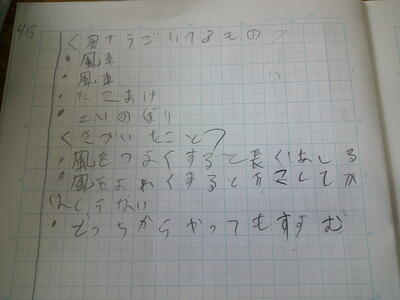 4/13
<風でうごいてるもの>
・風車
・風車
・たこあげ
・こいのぼり
<きがいたこと>
・風をつよくすると長くはしる
・風をよわくするとすこしてか
はしらない
・どっちからやってもすすむ